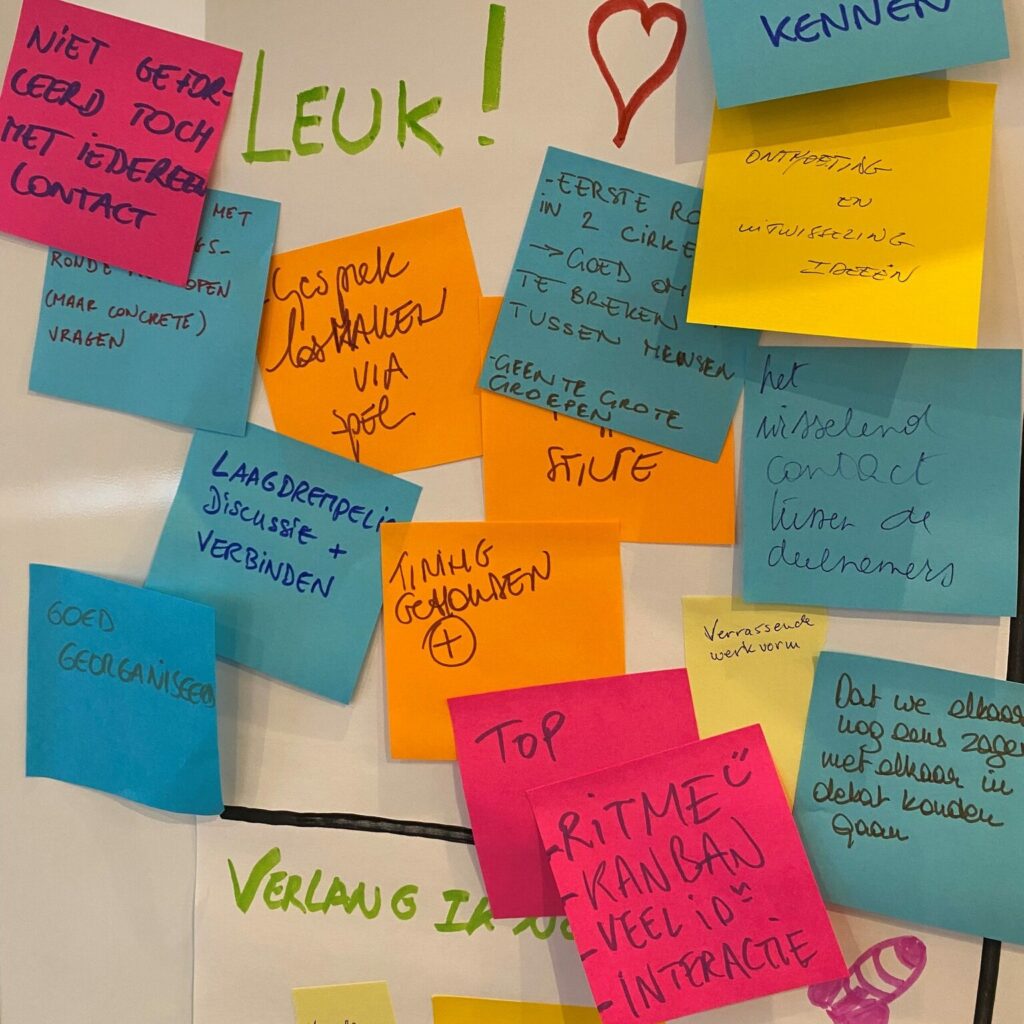 NIET GEFOR-
CEERD TOCH
MET IEDEREEN
CONTACT
LEUK!
KENNEN
MET
GS-
RONDE
OPEN
(MAAR CONCRETE)
VRAGEN
-Gesprek
losMAKEN
VIA
spel
-EERSTE RO
IN 2 CIRKE
→GOED OM
TE BREKEN
TUSSEN MENSEN
-GEEN TE GROTE
GROEPEN
ONTMOETING
EN
UITWISSELING
IDEEËN
STILTE
het
wisselend
contact
tussen de
deelnemers
LAAGDREMPELIG
DISCUSSIE +
VERBINDEN
TIMING
GEHOUDEN
+
GOED
GEORGANISEERD
Verrassende
werkvorm
Dat we elkaar
nog eens zagen
met elkaar in
debat konden
gaan
TOP
-RITME
-KANBAN
-VEEL ID
-INTERACTIE
VERLANG IK NO